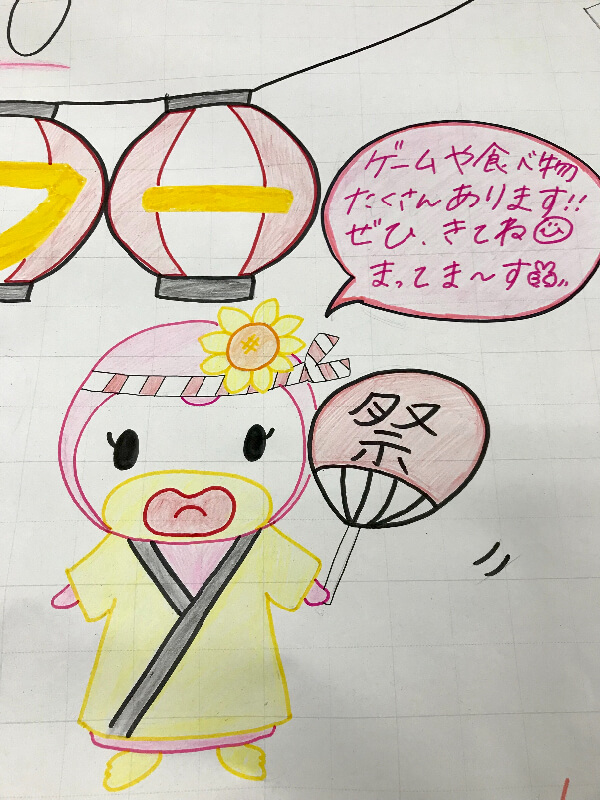 フー
ゲームや食べ物
たくさんあります!!
ぜひ、きてね
まってま〜す
祭